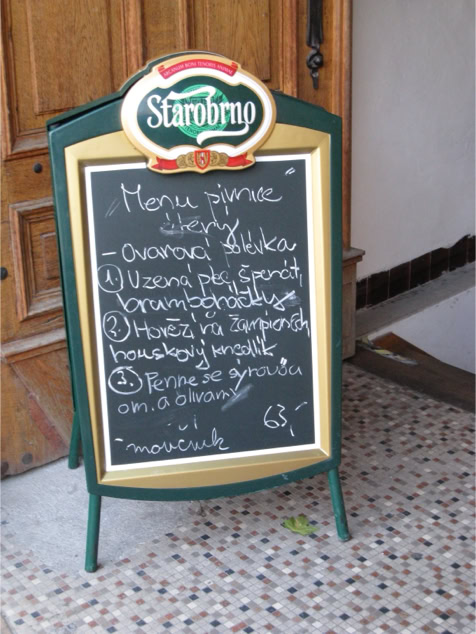 Starobrno
Menu pivnice
úterý
- Ovarová polévka
1. Uzená pec, špenát,
bramboháčky
2. Hovězí na žampionech,
houskový knedlík
3. Penne se syrovou
om. a olivami
63,-
- moučník